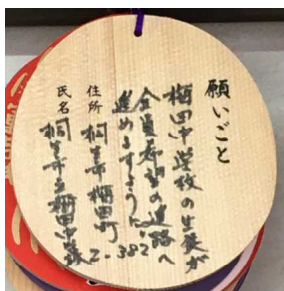 願いごと
梅田中学校の生徒が
全員希望の進路へ
進めますように!
住所 桐生市梅田町2-382
氏名 桐生市立梅田中学校